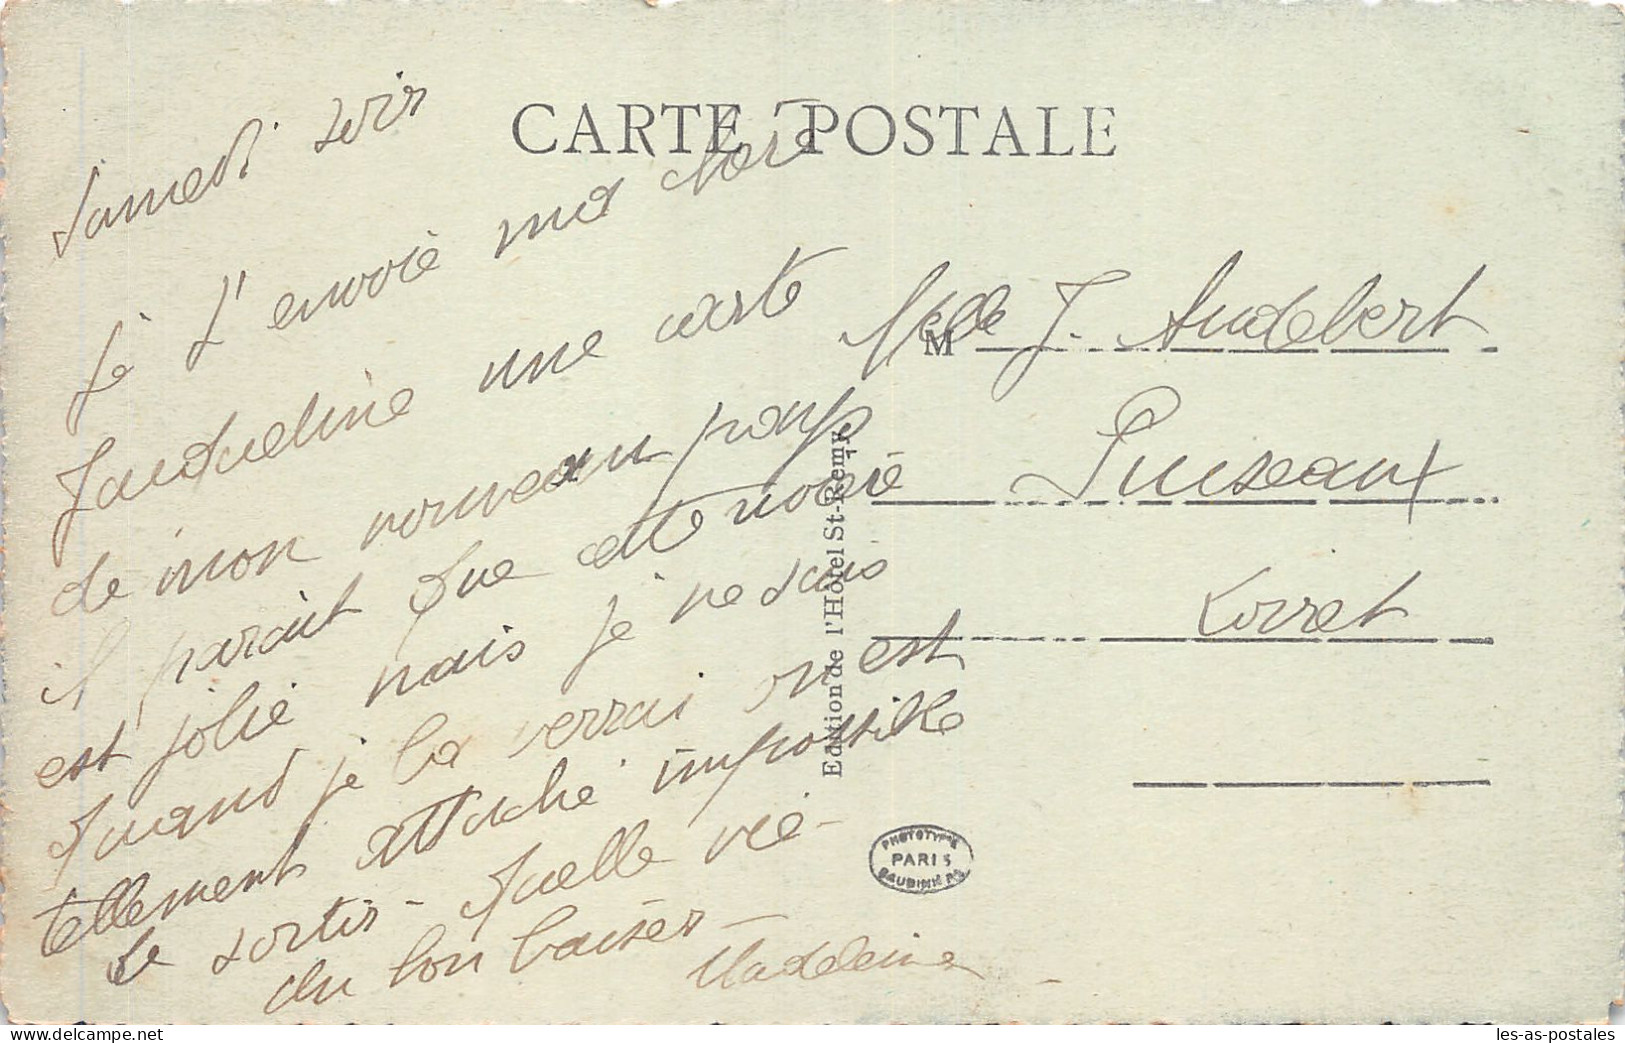 CARTE POSTALE
Samedi soir
Je t'envoie ma chère
Jacqueline une carte
de mon nouveau pays
il parait que cette
est jolie mais je ne suis
quand je la verrai on est
tellement attaché impossible
de sortir - quelle vie -
Un bon baiser -
Madeleine
M
Melle J. Audebert
Puiseaux
Loiret
Edition de l'Hôtel St-Remy
PHOTOTYPIE
PARIS
BAUDINIÈRE
delcampe.net
les-as-postales